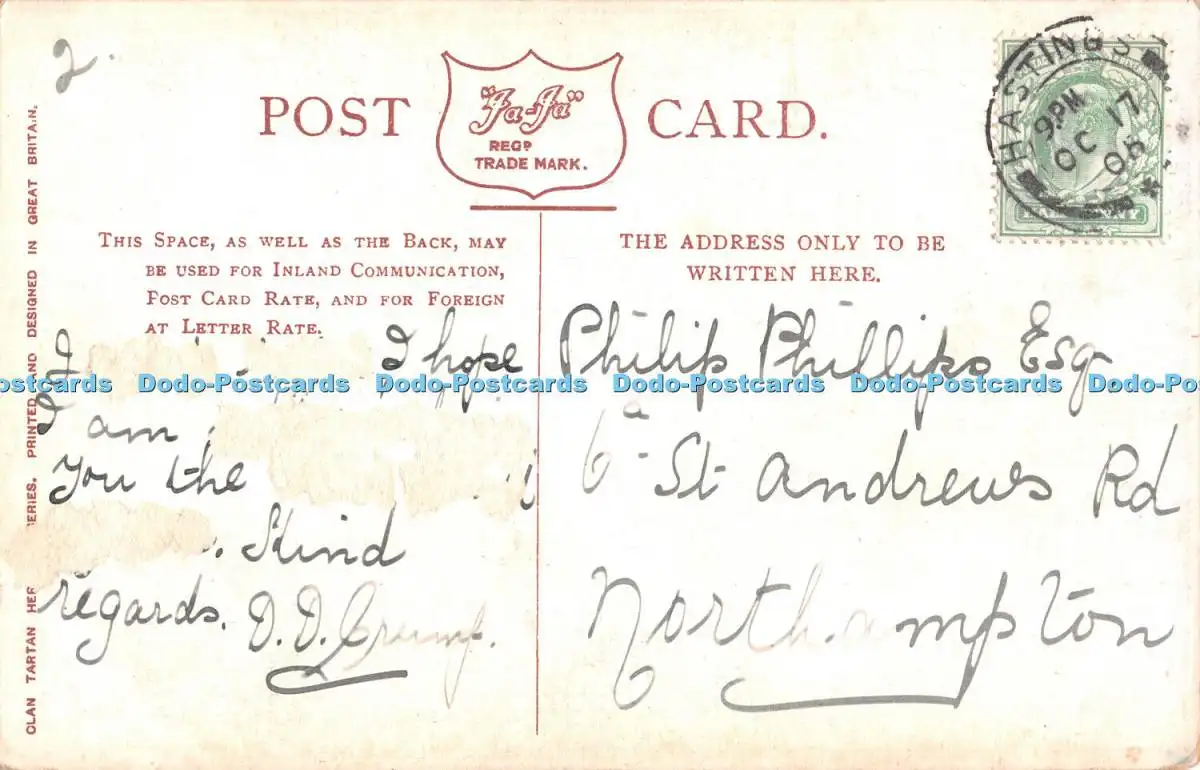 2.
POST CARD.
"Ja-Ja"
REGD
TRADE MARK.
HASTINGS
9 PM
OC 17
06
HALFPENNY
THIS SPACE, AS WELL AS THE BACK, MAY
BE USED FOR INLAND COMMUNICATION,
POST CARD RATE, AND FOR FOREIGN
AT LETTER RATE.
THE ADDRESS ONLY TO BE
WRITTEN HERE.
I hope
I am
you the
Kind
regards. D. D. Crump.
Philip Phillips Esq
6a St Andrews Rd
Northampton
CLAN TARTAN HER SERIES. PRINTED AND DESIGNED IN GREAT BRITAIN.
Dodo-Postcards Dodo-Postcards Dodo-Postcards Dodo-Postcards